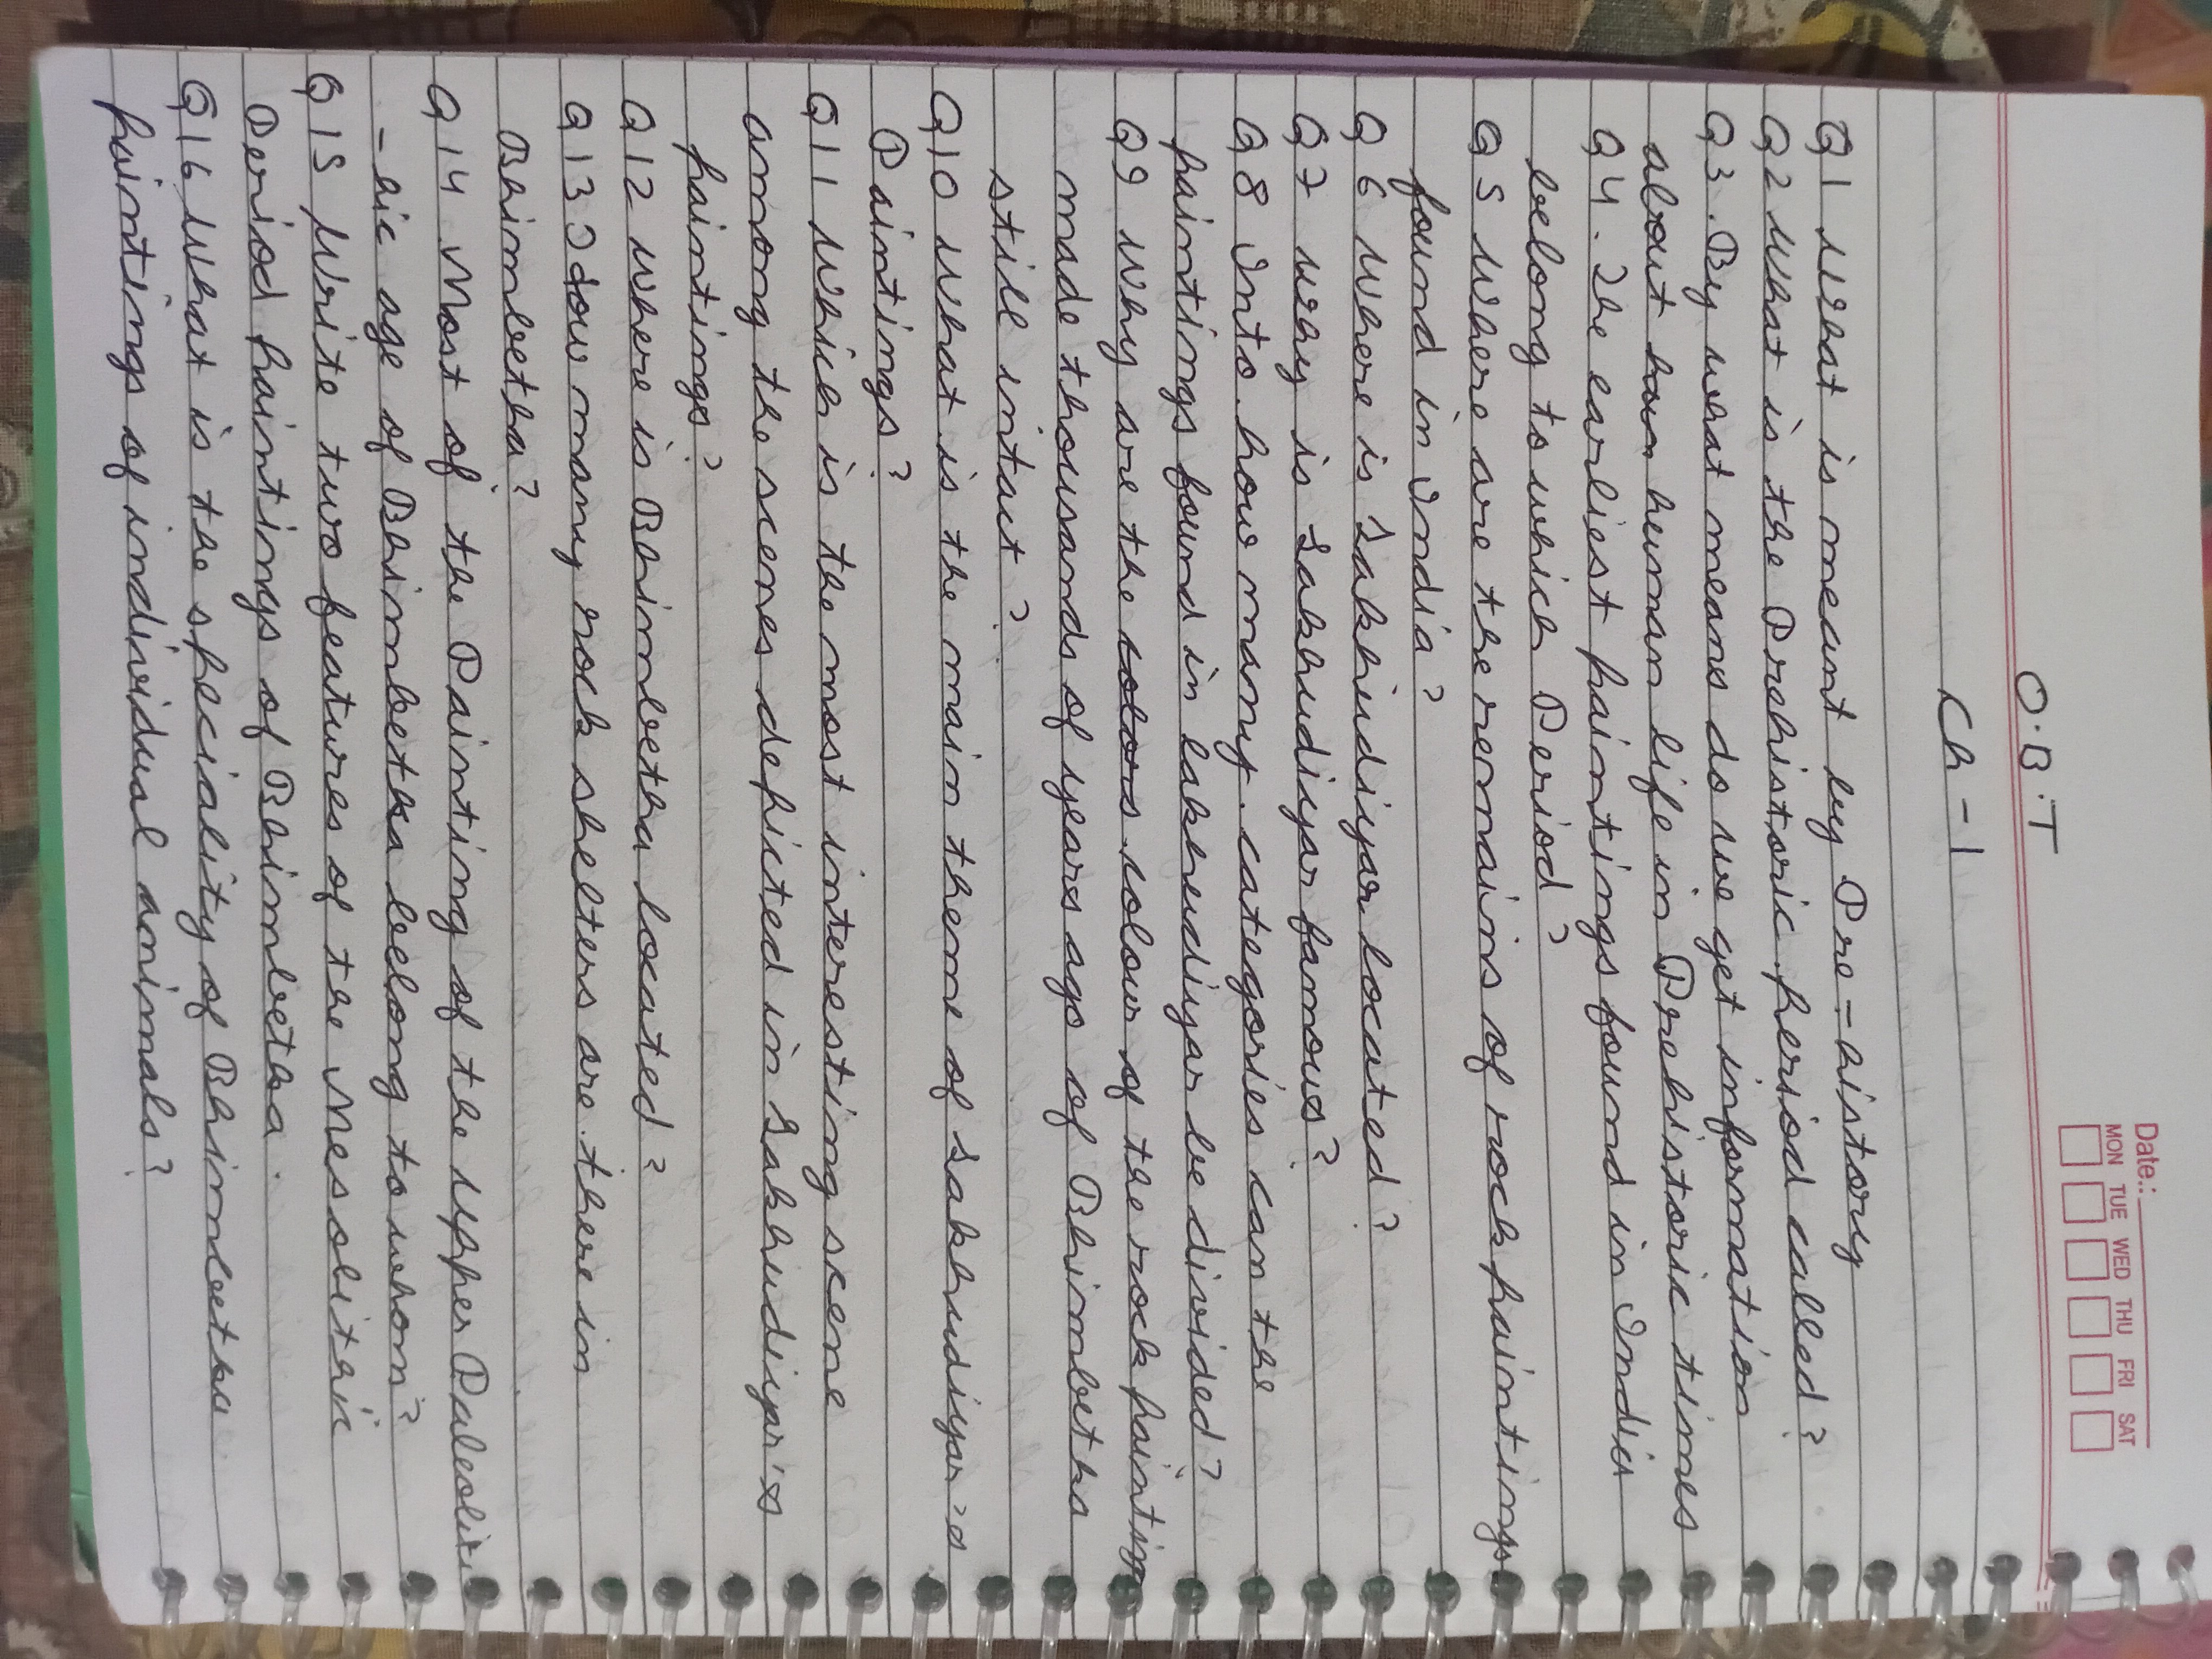 Date.:
MON TUE WED THU FRI SAT
O.B.T
Ch-1
Q1 What is meant by Pre-history
Q2 What is the Prehistoric period called?
Q3. By what means do we get information
about human life in Prehistoric times
Q4. The earliest paintings found in India
belong to which Period?
Q5 Where are the remains of rock paintings
found in India?
Q6 Where is Lakhudiyar located?
Q7 Why is Lakhudiyar famous?
Q8 Into how many categories can the
paintings found in Lakhudiyar be divided?
Q9 Why are the colour of the rock painting
made thousands of years ago of Bhimbetka
still intact?
Q10 What is the main theme of Lakhudiyar's
Paintings?
Q11 Which is the most interesting scene
among the scenes depicted in Lakhudiyar's
paintings?
Q12 Where is Bhimbetka located?
Q13 How many rock shelters are there in
Bhimbetka?
Q14 Most of the Painting of the Upper Paleolith
-hic age of Bhimbetka belong to whom?
Q15 Write two features of the Mesolithic
Period paintings of Bhimbetka.
Q16 What is the speciality of Bhimbetka
paintings of individual animals?